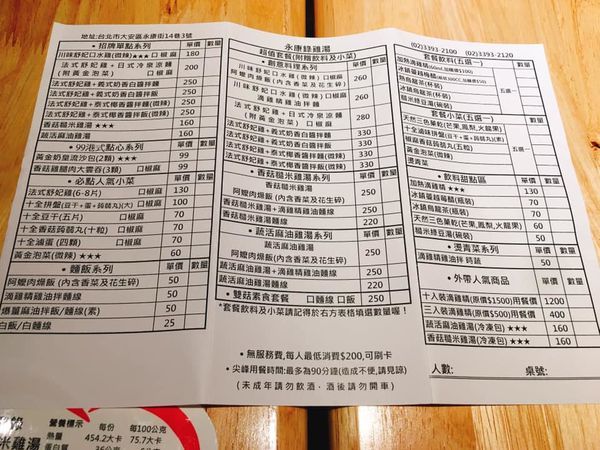 地址:台北市大安區永康街14巷3號
• 招牌單點系列 單價 數量
川味舒妃口水雞(微辣)★★★ 口椒麻 180
法式舒妃雞+日式冷泉涼麵
(附黃金泡菜) 口椒麻 200
法式舒妃雞+義式奶香白醬拌麵
法式舒妃雞+義式奶香白醬拌飯
法式舒妃雞+泰式椰香醬拌麵(微辣)
法式舒妃雞+泰式椰香醬拌飯(微辣)
香菇糙米雞湯★★★ 160
蔬活麻油雞湯 160
• 99港式點心系列 單價 數量
黃金奶皇流沙包(2顆)★★★ 99
香菇雞腿肉大雲吞(3顆) 99
• 必點人氣小菜 單價 數量
法式舒妃雞(6-8片) 口椒麻 130
十全拼盤(豆干+蛋+蒟蒻丸)(大) 口椒麻 100
十全豆干(五片) 口椒麻 50
十全香菇蒟蒻丸(十粒) 口椒麻 50
十全滷蛋(四顆) 口椒麻 60
黃金泡菜(微辣)★★★ 60
• 麵飯系列 單價 數量
阿嬤肉燥飯(內含香菇及花生碎) 50
滴雞精雞油拌麵線 50
爆量麻油拌飯/麵線(素) 50
白飯/白麵線 25
永康錄雞湯
超值套餐(附體飲料及小菜)
• 創意料理系列 單價 數量
川味舒妃口水雞(微辣) 口椒麻
阿嬤肉燥飯(內含香菇及花生碎) 260
川味舒妃口水雞(微辣) 口椒麻
滴雞精雞油拌麵 260
法式舒妃雞+日式冷泉涼麵
(附黃金泡菜) 口椒麻 280
法式舒妃雞+義式奶香白醬拌麵 330
法式舒妃雞+義式奶香白醬拌飯 330
法式舒妃雞+泰式椰香醬拌麵(微辣) 330
法式舒妃雞+泰式椰香醬拌飯(微辣) 330
• 香菇糙米雞湯系列 單價 數量
香菇糙米雞湯
阿嬤肉燥飯(內含香菇及花生碎) 250
香菇糙米雞湯+滴雞精雞油麵線 250
香菇糙米雞湯麵線 220
• 蔬活麻油雞湯系列 單價 數量
蔬活麻油雞湯
阿嬤肉燥飯(內含香菇及花生碎) 250
蔬活麻油雞湯+滴雞精雞油麵線 250
蔬活麻油雞湯麵線 220
• 雙菇素食套餐 口麵線 口飯 250
*套餐飲料及小菜請記得於右方表格填選數量喔!
• 無服務費,每人最低消費$200,可刷卡
• 尖峰用餐時間:最多為90分鐘(造成不便,請見諒)
(未成年請勿飲酒、酒後請勿開車)
(02)3393-2100 (02)3393-2120
套餐飲料(五選一) 數量
加熱滴雞精(60ml,加購價$100)
冰鎮蔓越莓醋
冰鎮烏龍茶(杯裝)
熱烏龍茶(杯裝)
糙米綠豆湯(碗裝)
五選一
套餐小菜(五選一) 數量
天然三色菓乾(芒果,鳳梨,火龍果)
十全滷味拼盤(豆干+蛋+蒟蒻丸)
十全豆干
黃金泡菜(微辣)
燙青菜
五選一
• 飲料甜點區 單價 數量
加熱滴雞精★★★ 130
冰鎮蔓越莓醋(瓶裝)
冰鎮烏龍茶(瓶裝)
天然三色菓乾(芒果,鳳梨,火龍果) 60
糙米綠豆湯(碗裝) 50
• 燙青菜系列 單價 數量
滴雞精雞油拌 時蔬 50
• 外帶人氣商品 單價 數量
十入裝滴雞精(原價$1500)用餐價 1200
三入裝滴雞精(原價$500)用餐價 400
蔬活麻油雞湯(冷凍包)★★★ 160
香菇糙米雞湯(冷凍包)★★★ 160
人數: 桌號:
米雞湯
營養標示 每份 每100公克
熱量 454.2大卡 75.7大卡
蛋白質 36公克 6公克